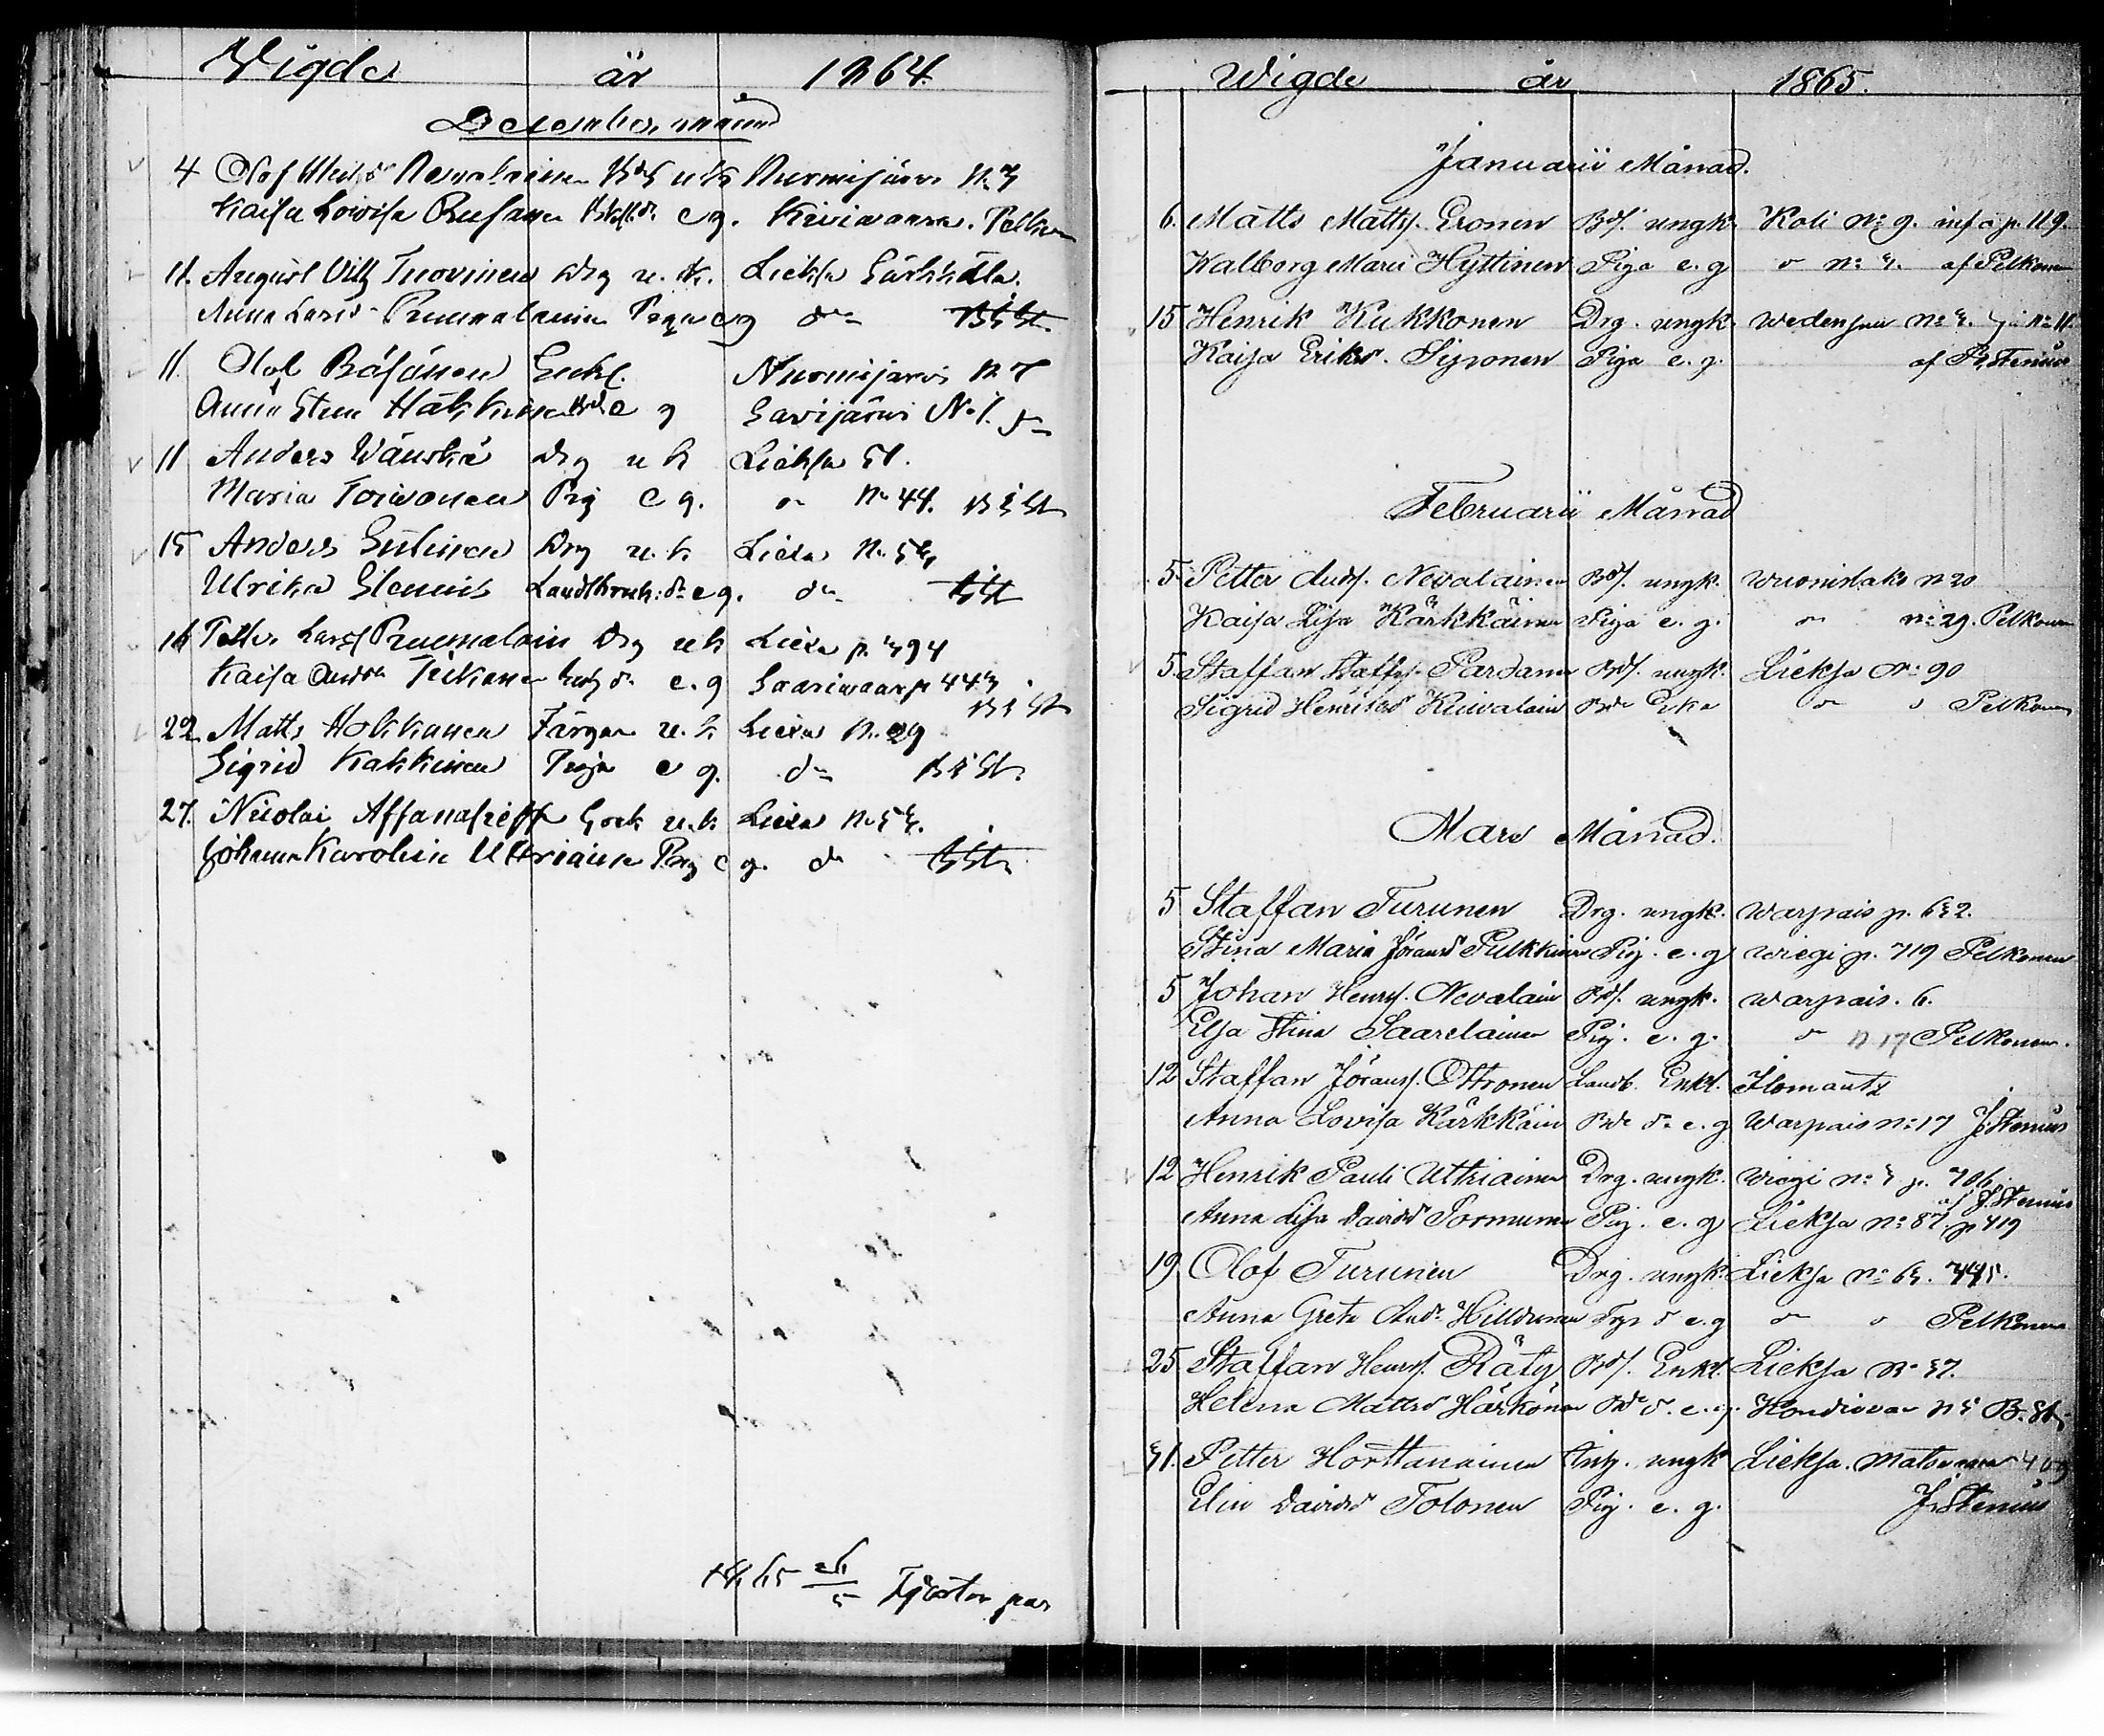 Wigde år 1864.
December månad
4 Olof Nevalainen Bds u k Nurmijärvi N 3
Kaisa Lovisa Rusanen e g. Kiviwaara. Pelkon
11. August Vilh Tuovinen Drg u. k. Lieksa Särkkälä.
Anna Larsd Pruumalainen Piga e g do
11. Olof Enkl. Nurmijärvi N 7
Anna Stina Häkkinen e g Savijärvi No 1.
11 Anders Wänskä Drg u k Lieksa 51.
Maria Toivonen Pig e g. do No 44.
15 Anders Drg u. k Liexa N.
Ulrika e g. do
16 Petter Larss Pruumalain Drg u k Liexa p. 394
Kaisa Andsdr Tiikanen e. g Saariwaara p 443
22 Matts Holkkanen Färgare u. k Liexa N. 29
Sigrid Kakkinen Piga e g. do
27. Nicolai Affanasieff Grek u. k Liexa N 53.
Johanna Karolin Uttriain Pig e g. do
1865 26/5 Fjorton par
Wigde år 1865.
Januarii Månad.
6. Matts Matts. Eronen Bds. ungk. Koli No 9. p. 119.
Walborg Maria Hyttinen Piga e. g do No 3. af Pelkonen
15 Henrik Kukkonen Drg. ungk. Wedensuu No 3. No 11.
Kaisa Eriksd. Sipponen Piga e. g. af Stenius
Februarii Månad
5 Petter Ands. Nevalainen Bds. ungk. Wuonislaks N 20
Kaisa Lisa Kärkkäinen Piga e. g. do No 29. Pelkonen
5. Staffan Staffs. Pardanen Bds. ungk. Lieksa No 90
Sigrid Henriksd Kuivalain Bde Enka do Pelkonen
Mars Månad.
5 Staffan Turunen Drg. ungk. Warpais p. 632.
Stina Maria Jöransd Pulkkinen Pig. e. g Wiegi p. 719 Pelkonen
5 Johan Henrs. Nevalain Bds. ungk. Warpais. 6.
Elsa Stina Saarelainen Pig. e. g. do N 17 Pelkonen.
12 Staffan Jörans. Ottronen Landb. Enkl. Ilomantz
Anna Lovisa Kärkkäin Bde dr e. g Warpais No 17 J. Stenius
12 Henrik Pauli Uttriainen Drg. ungk. Wiegi No 3 p. 706
Anna Lisa Davidsd Sormunen Pig. e. g Lieksa No 87 p 419 af J. Stenius
19 Olof Turunen Drg. ungk. Lieksa No 63. 445.
Anna Greta Andr. Hilldunen e. g do do Pelkonen
25 Staffan Henrs. Räty Bds. Enkl. Lieksa No 37.
Helena Mattsd Härkönen Bde d. e. g. Hondiovar N 5 B. St
31. Petter Horttanainen Inh. ungk Lieksa. 409
Elin Davidsd Tolonen Pig. e. g. J. Stenius